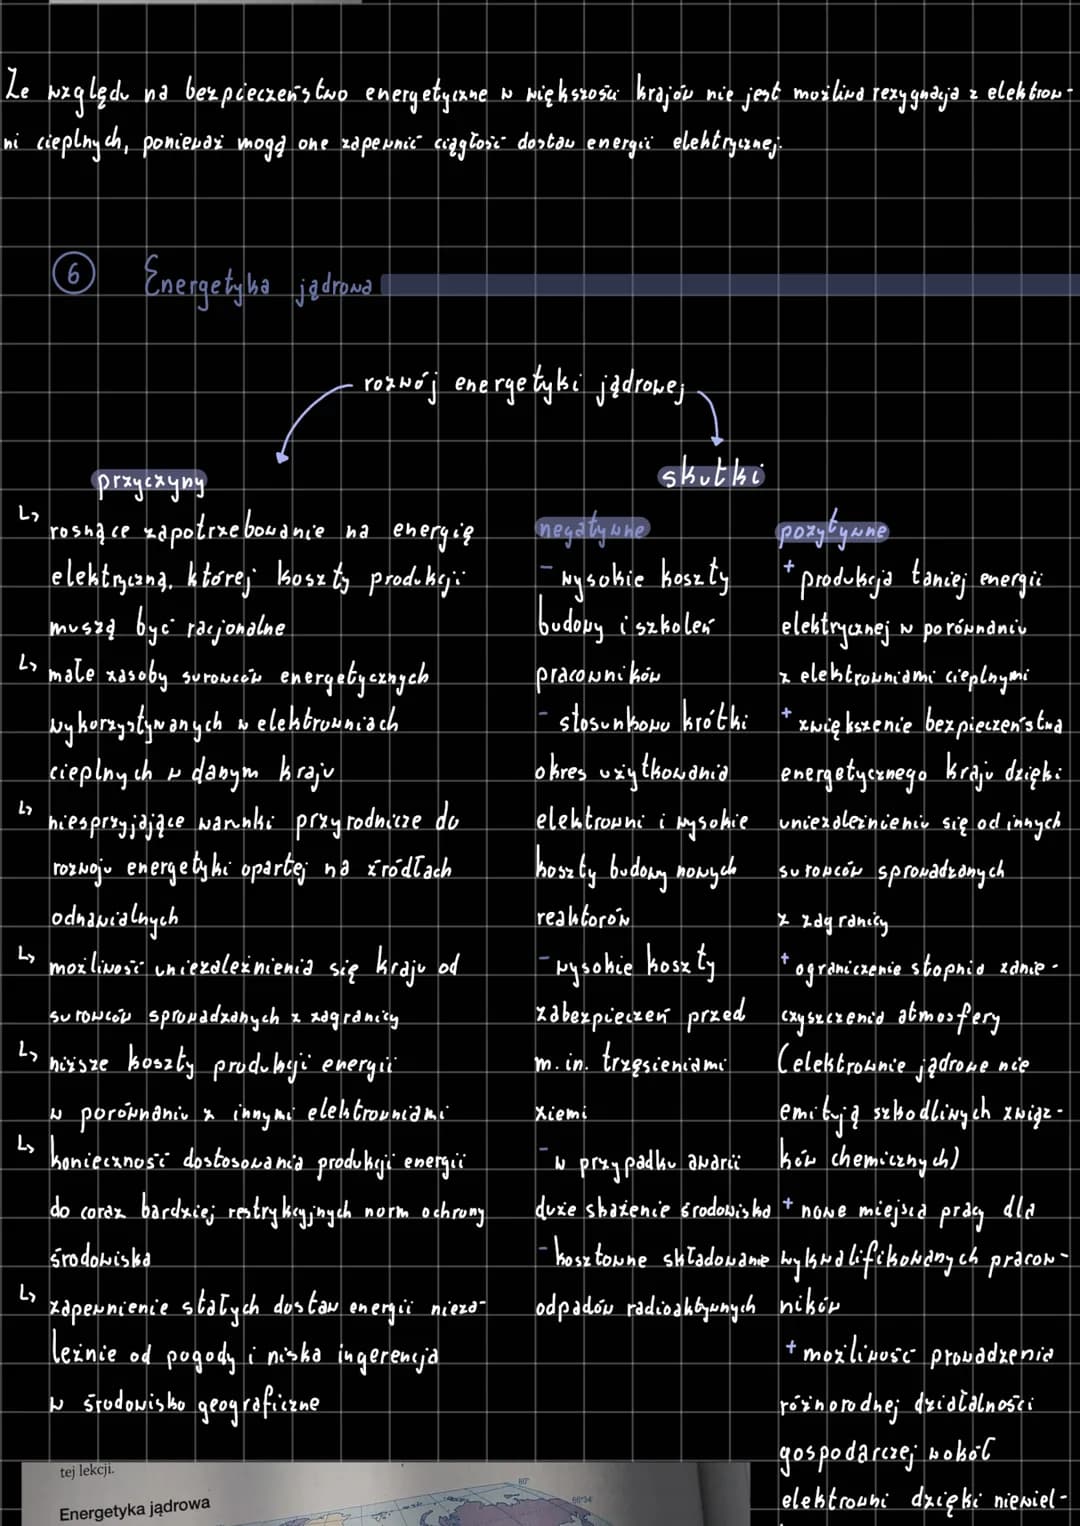 Ze względu na bezpieczeństwo energetyczne w większości krajów nie jest możliwa rezygnacja z elektrow-
ni cieplnych, ponieważ mogą one zapewnić ciągłość dostaw energii elektrycznej.
6 Energetyka jądrowa
rozwój energetyki jądrowej
przyczyny
↳ rosnące zapotrzebowanie na energię
elektryczną, której koszty produkcji
muszą być racjonalne
↳ małe zasoby surowców energetycznych
wykorzystywanych w elektrowniach
cieplnych w danym kraju
↳ niesprzyjające warunki przyrodnicze do
rozwoju energetyki opartej na źródłach
odnawialnych
↳ możliwość uniezależnienia się kraju od
surowców sprowadzanych z zagranicy
↳ niższe koszty produkcji energii
w porównaniu z innymi elektrowniami
↳ konieczność dostosowania produkcji energii
do coraz bardziej restrykcyjnych norm ochrony
środowiska
↳ zapewnienie stałych dostaw energii nieza-
leżnie od pogody i niska ingerencja
w środowisko geograficzne
skutki
negatywne
- wysokie koszty
budowy i szkoleń
pracowników
- stosunkowo krótki
okres użytkowania
elektrowni i wysokie
koszty budowy nowych
reaktorów
- wysokie koszty
zabezpieczeń przed
m.in. trzęsieniami
ziemi
- w przypadku awarii
duże skażenie środowiska
- kosztowne składowanie
odpadów radioaktywnych
pozytywne
+ produkcja taniej energii
elektrycznej w porównaniu
z elektrowniami cieplnymi
+ zwiększenie bezpieczeństwa
energetycznego kraju dzięki
uniezależnieniu się od innych
surowców sprowadzanych
z zagranicy
+ ograniczenie stopnia zanie-
czyszczenia atmosfery
(elektrownie jądrowe nie
emitują szkodliwych związ-
ków chemicznych)
+ nowe miejsca pracy dla
wykwalifikowanych pracow-
ników
+ możliwość prowadzenia
różnorodnej działalności
gospodarczej wokół
elektrowni dzięki niewiel-
tej lekcji.
Energetyka jądrowa
80°
66°34'